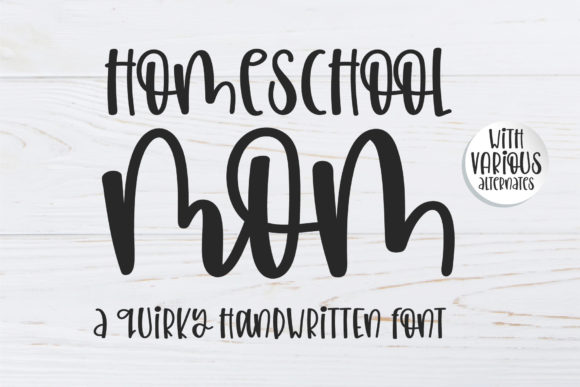 HOMESCHOOL
MOM
WITH
VARIOUS
ALTERNATES
A QUIRKY HANDWRITTEN FONT